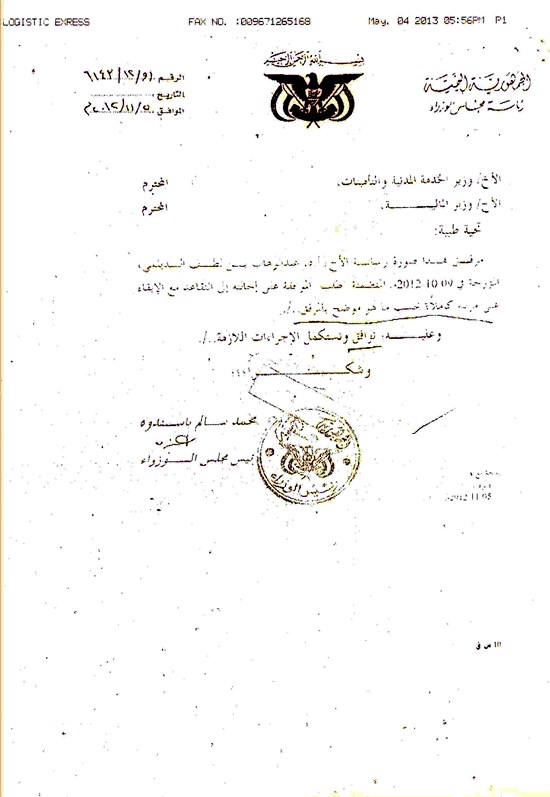 LOGISTIC EXRESS FAX NO. :009671265168 May. 04 2013 05:56PM P1
بسم الله الرحمن الرحيم
الجمهورية اليمنية
رئاسة مجلس الوزراء
الرقم
التاريخ
الموافق ٥/١١/٢٠١٢م
الأخ/ وزير الخدمة المدنية والتأمينات. المحترم
الأخ/ وزير المالية. المحترم
تحية طيبة:
مرفق هذا صورة رسالة الأخ/ أ.د. عبدالوهاب بن لطف الديلمي،
المؤرخة في 09-10-2012م. المتضمنة طلب الموافقة على إحالته إلى التقاعد مع الإبقاء
على مرتبه كاملاً، حسب ما هو موضح بالمرفق./.
وعليه: نوافق وتستكمل الإجراءات اللازمة./.
وشكراً،،
محمد سالم باسندوه
رئيس مجلس الوزراء
رئيس الوزراء
2012-11-05